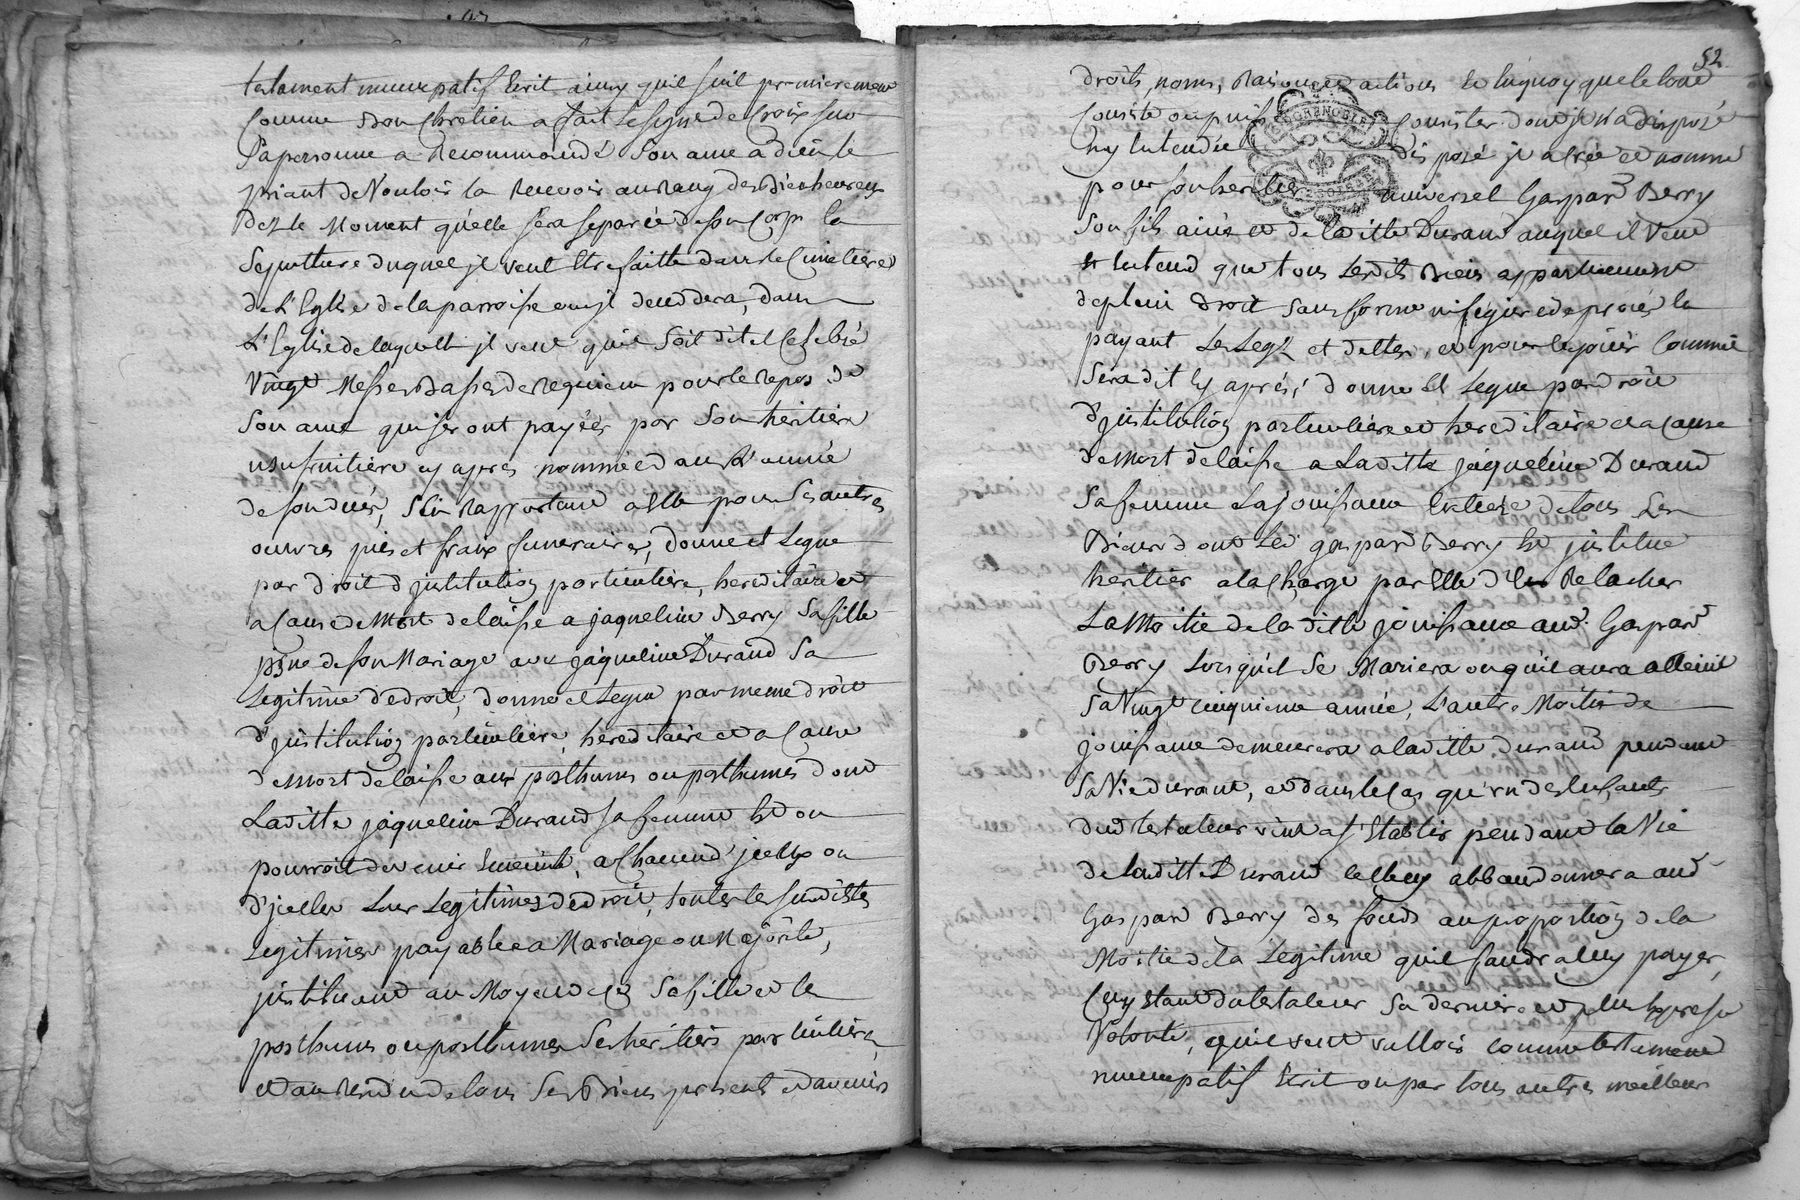 testament nuncupatif Ecrit ainsy qu'il suit premierement
Comme Bon Chrétien a fait le signe de Croix sur
Sa personne a Recommandé Son ame a dieu le
priant de Vouloir la Recevoir au Rang des Bienheureux
Dez le Moment qu'elle sera separée de son Corps la
Sepulture duquel jl veut Etre faitte dans le Cimetiere
de L'Eglise de la parroisse ou jl deceddera, dans
L'Eglise de laquelle jl veut qu'il soit dit et Celebré
Vingt Messes Basses de Requiem pour le repos de
Son ame qui seront payées par Son heritiere
usufruitiere cy apres nommée dans L'année
de son deces, S'en Rapportant a elle pour Ses autres
œuvres pies et fraix funeraires, donne et Legue
par droit d'jnstitution particuliere, hereditaire et
a Cause de Mort delaisse a jaqueline Berry Sa fille
née de son Mariage avec jaqueline Durand Sa
Legitime de droit, donne et Legue par meme droit
D'jnstitution particuliere, hereditaire et a Cause
de Mort delaisse aux posthumes ou posthumes dont
Laditte jaqueline Durand sa femme Est ou
pourroit devenir Enceinte, a Chacun d'jceux ou
d'jcelles Leur Legitimes de droit, toutes les susdittes
Legitimes payables a Mariage ou Majorité,
jnstituant au Moyen de ce Sa fille et les
posthumes ou posthumes Ses heritiers particuliers,
et au Residu de tous Ses Biens present et avenir
52
droits, noms, Raisons et actions et En quoy que le tout
Consiste ou puisse Consister dont jl n'a disposé
ny Entend disposé jl a créé et nommé
pour son heritier universel Gaspard Berry
Son fils ainé et de laditte Durand auquel il veut
et Entend que tous Lesdits Biens appartiennent
de plein Droit sans forme ni figure de procés En
payant Les Legs et dettes, et pour En jouir Comme
Sera dit cy aprés, donne Et Legue par droit
D'jnstitution particuliere et hereditaire et a Cause
de Mort delaisse a Laditte jaqueline Durand
Sa femme La jouissance Entiere de tous Les
Biens dont Led. gaspard Berry Est jnstitué
heritier a la Charge par Elle d'En Relacher
La Moitié de laditte jouissance aud. Gaspard
Berry Lorsqu'il Se Mariera ou qu'il aura atteint
Sa Vingt cinquieme année, L'autre Moitié de
jouissance demeurera a laditte Durand pendant
Sa Vie durant, et dans le Cas qu'un des Enfants
dud testateur vint a s'Etablir pendant la Vie
de laditte Durand celle cy abbandonnera aud
Gaspard Berry des fonds au proportion de la
Moitié de la Legitime qu'il faudra luy payer,
Cecy Etant dud testateur Sa derniere et plus Expresse
Volonté, qu'il veut valloir comme testament
nuncupatif Ecrit ou par tous autres meilleurs